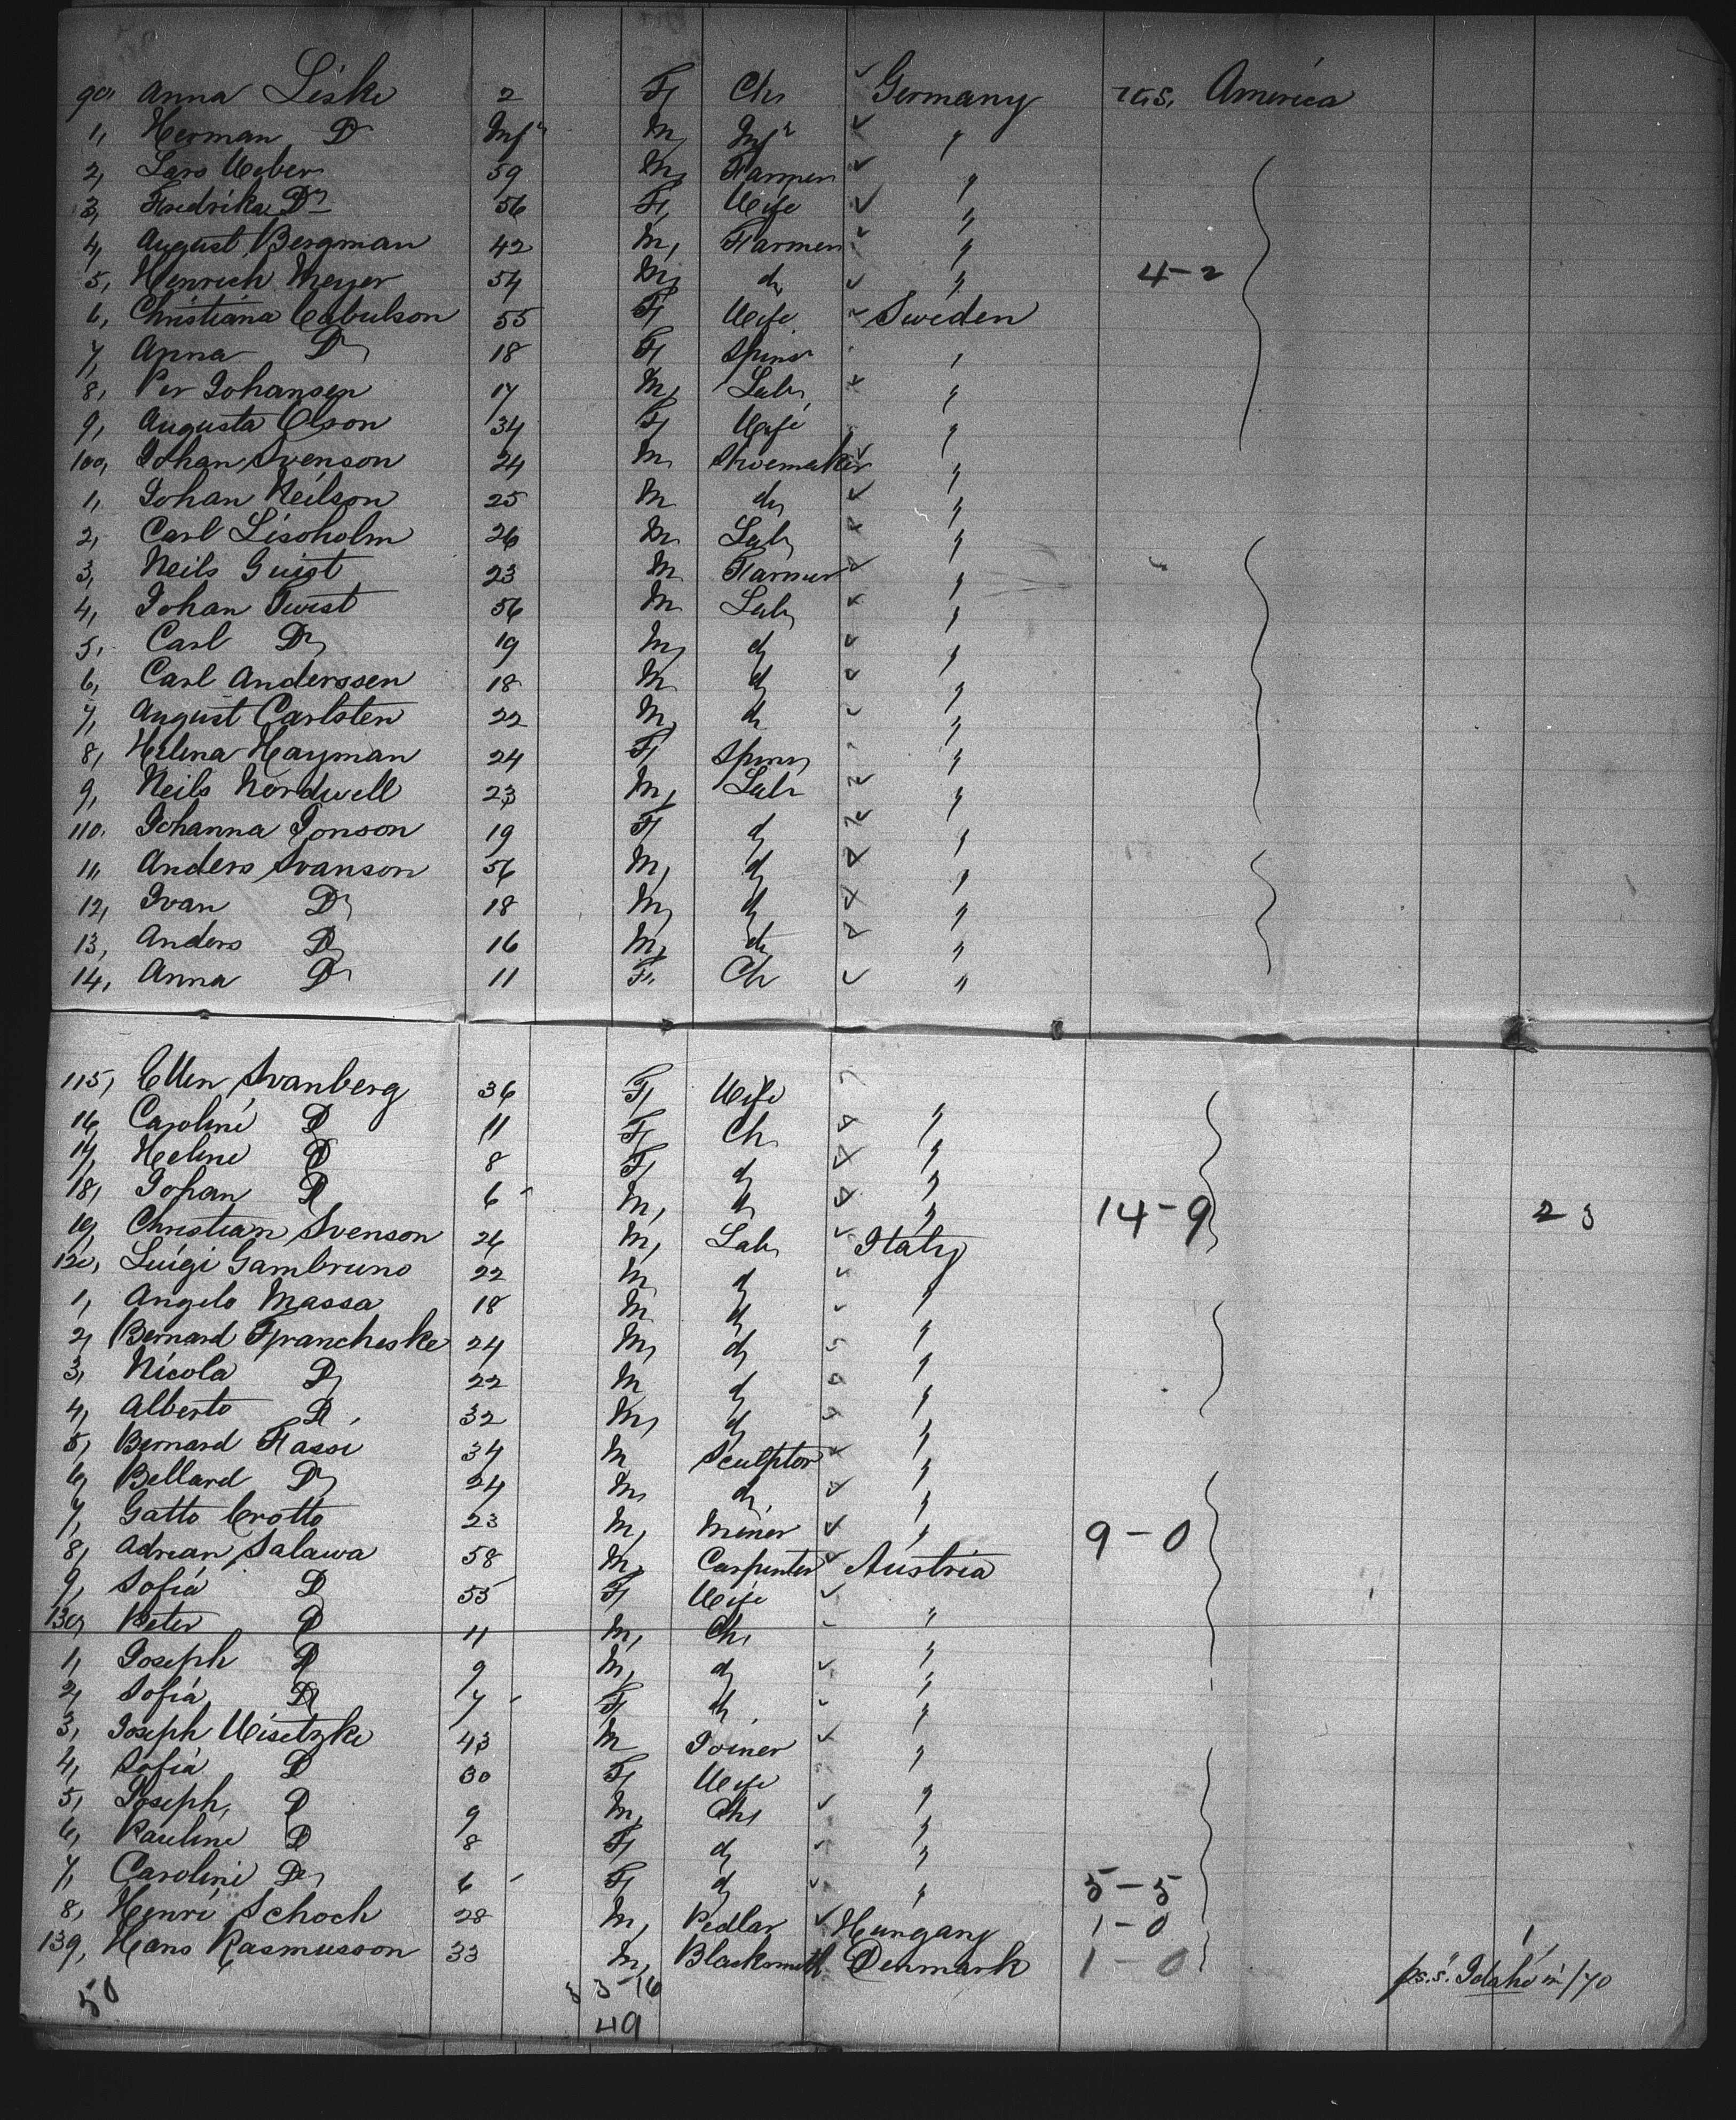 90, Anna Liske 2 F, Ch, Germany U.S. America
1, Herman Do Inft M, Inft "
2, Lars Weber 59 M, Farmer "
3, Fredrika Do 56 F, Wife "
4, August Bergman 42 M, Farmer "
5, Henrich Meyer 54 M, do " 4-2
6, Christiana 55 F, Wife Sweden
7, Anna Do 18 F, Spinr "
8, Per Johansen 17 M, Labr "
9, Augusta Olson 34 F, Wife "
100, Johan Svenson 24 M, Shoemaker "
1, Johan Neilson 25 M do "
2, Carl Lisoholm 26 M, Labr "
3, Neils Guist 23 M Farmer "
4, Johan Twist 56 M Labr "
5, Carl Do 19 M, do "
6, Carl Anderssen 18 M do "
7, August Carlsten 22 M, do "
8, Helena Hayman 24 F, Spinr "
9, Neils Nordwell 23 M, Labr "
110, Johanna Jonson 19 F, do "
11, Anders Svanson 56 M, do "
12, Ivan Do 18 M, do "
13, Anders Do 16 M, do "
14, Anna Do 11 F, Ch "
115, Ellen Svanberg 36 F, Wife
16, Caroline Do 11 F, Ch "
17, Heline Do 8 F, do "
18, Johan Do 6 M, do " 14-9 23
19, Christian Svenson 26 M, Labr "
120, Luigi Gambruno 22 M do Italy
1, Angelo Massa 18 M do "
2, Bernard Francheske 24 M, do "
3, Nicola Do 22 M do "
4, Alberto Do 32 M, do "
5, Bernard Fassi 34 M Sculptor "
6, Bellard Do 24 M, do "
7, Gatto Crotto 23 M, Miner " 9-0
8, Adrian Salawa 58 M, Carpenter Austria
9, Sofia Do 55 F, Wife
130, Peter Do 11 M, Ch, "
1, Joseph Do 9 M, do "
2, Sofia Do 7 F, do "
3, Joseph Wisetzke 43 M Joiner "
4, Sofia Do 30 F, Wife "
5, Joseph, Do 9 M, Ch, "
6, Pauline Do 8 F, do "
7, Caroline Do 6 F, do " 5-5
8, Henri Schoch 28 M, Pedlar Hungary 1-0
139, Hans Rasmusson 33 M, Blacksmith Denmark 1-0
50 33-16 p.s.s. Idaho
49